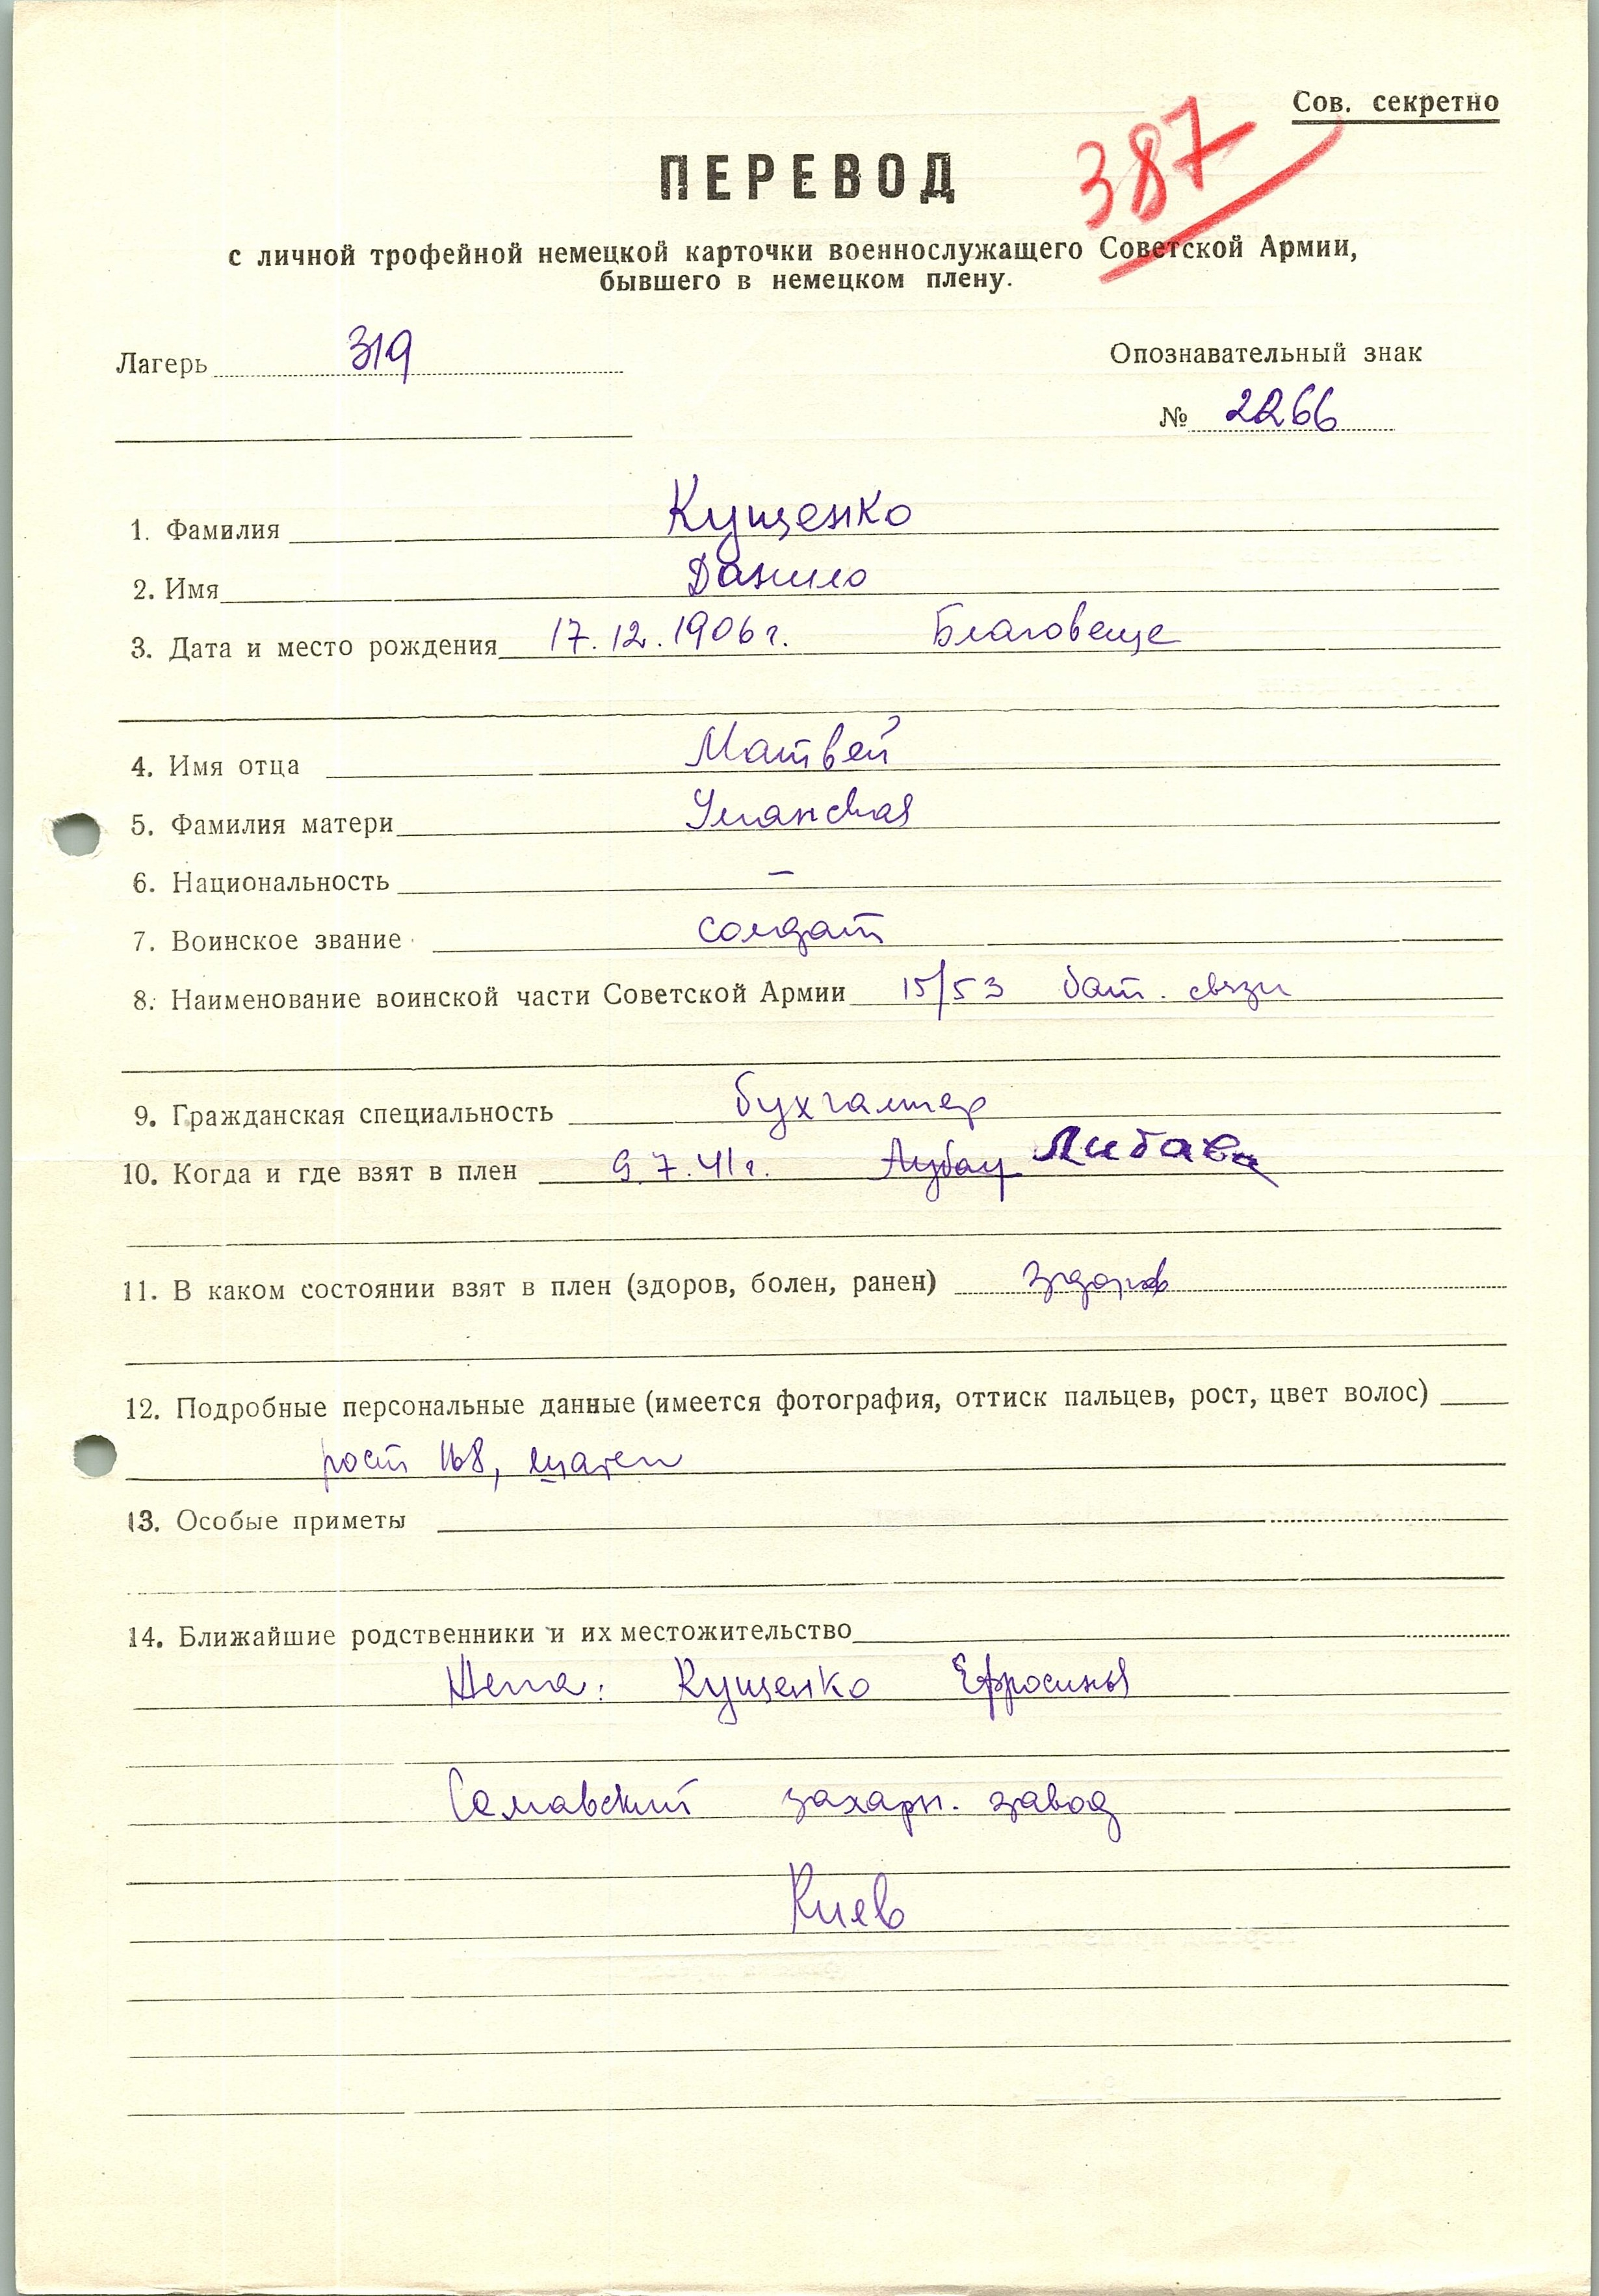 Сов. секретно
387
ПЕРЕВОД
с личной трофейной немецкой карточки военнослужащего Советской Армии,
бывшего в немецком плену.
Лагерь 319
Опознавательный знак
№ 2266
1. Фамилия Кущенко
2. Имя Данило
3. Дата и место рождения 17.12.1906 г. Благовеще
4. Имя отца Матвей
5. Фамилия матери Уманская
6. Национальность –
7. Воинское звание солдат
8. Наименование воинской части Советской Армии 15/53 бат. связи
9. Гражданская специальность бухгалтер
10. Когда и где взят в плен 9.7.41 г. Либава
11. В каком состоянии взят в плен (здоров, болен, ранен) здоров
12. Подробные персональные данные (имеется фотография, оттиск пальцев, рост, цвет волос)
рост 168, шатен
13. Особые приметы
14. Ближайшие родственники и их местожительство
Жена: Кущенко Ефросинья
захарн. завод
Киев